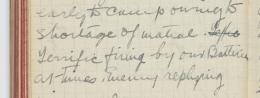 early to camp owning to
shortage of matreal.
Terrific firing by our Batteries
at times. Enemy replying